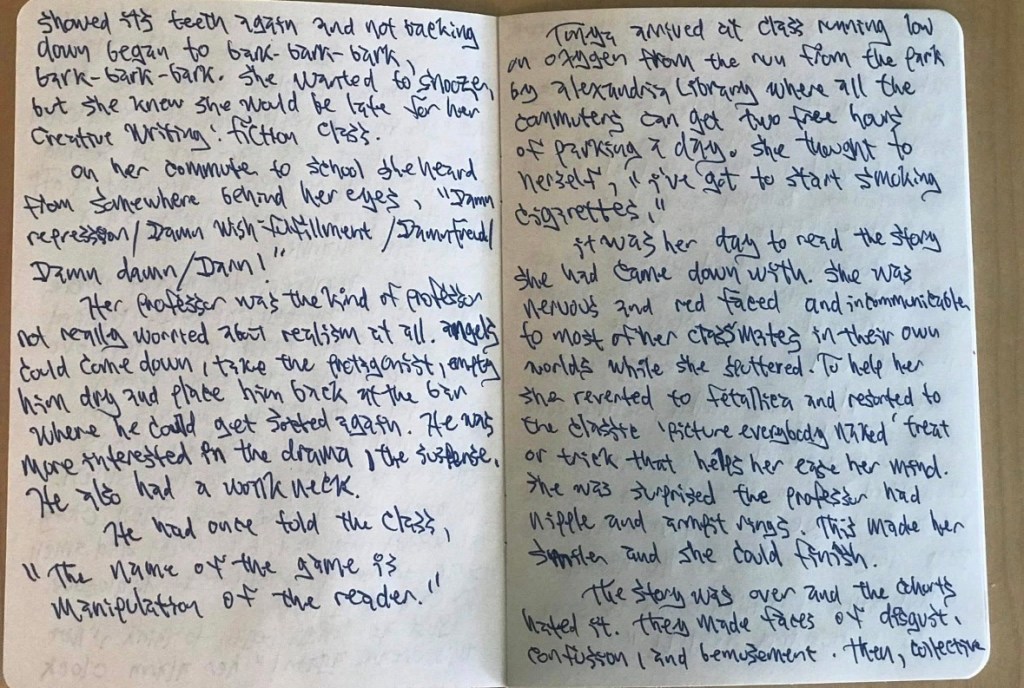 showed its teeth again and not backing
down began to bark-bark-bark,
bark-bark-bark. She wanted to snooze,
but she knew she would be late for her
Creative Writing: fiction class.
on her commute to school she heard
from somewhere behind her eyes, "Damn
repression/Damn Wish-fulfillment/Damn freud/
Damn damn/Damn!"
Her professor was the kind of professor
not really worried about realism at all. angels
could come down, take the protagonist, empty
him dry and place him back at the bar
where he could get sotted again. He was
more interested in the drama, the suspense.
He also had a work neck.
He had once told the class,
"The name of the game is
manipulation of the reader."
Tonya arrived at class running low
on oxygen from the run from the park
by alexandria Library where all the
commuters can get two free hours
of parking a day. She thought to
herself, "i've got to start smoking
cigarettes."
it was her day to read the story
she had came down with. She was
nervous and red faced and incommunicable
to most of her classmates in their own
worlds while she sputtered. To help her
she reverted to and resorted to
the classic 'picture everybody naked' treat
or trick that helps her ease her mind.
She was surprised the professor had
nipple and armpit rings. This made her
and she could finish.
The story was over and the cohorts
hated it. they made faces of disgust,
confusion, and bemusement. Then, collective